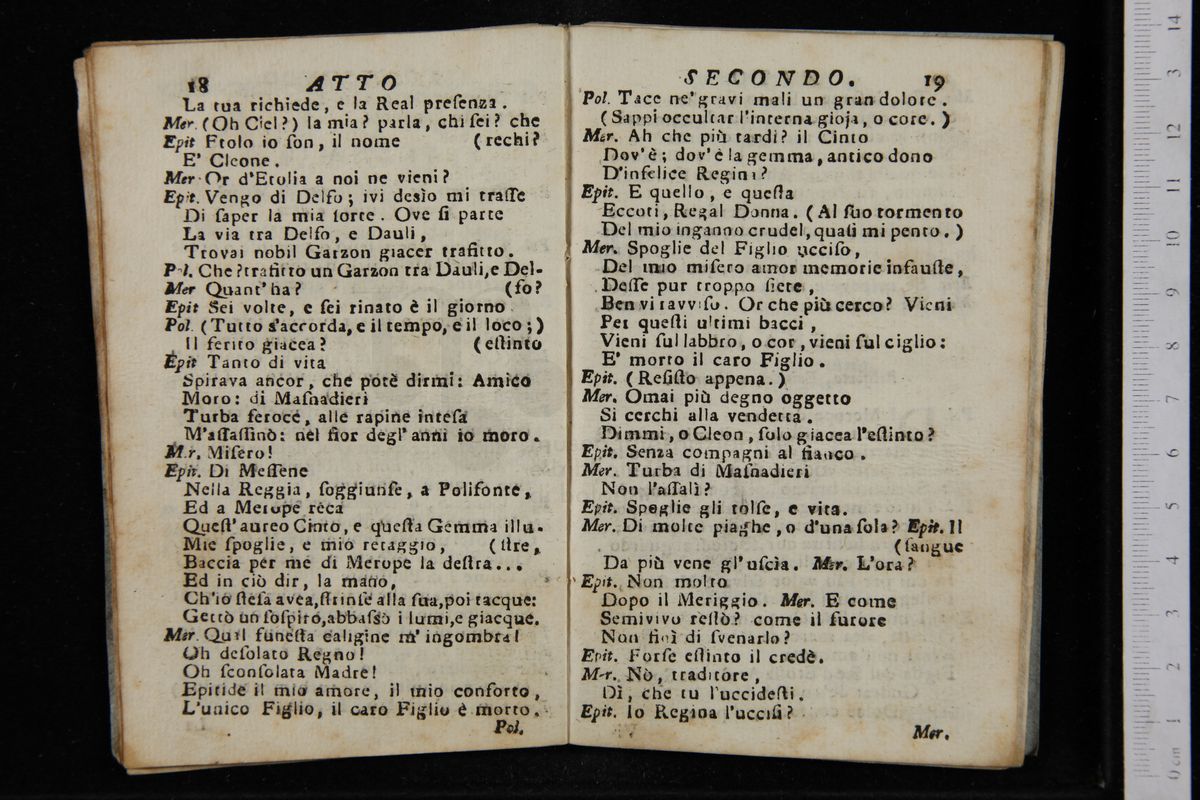 18 ATTO
La tua richiede, e la Real preſenza.
Mer. (Oh Ciel?) la mia? parla, chi ſei? che
Epit Etolo io ſon, il nome (rechi?
E' Cleone.
Mer Or d'Etolia a noi ne vieni?
Epit. Vengo di Delfo; ivi desìo mi traſſe
Di ſaper la mia ſorte. Ove ſi parte
La via tra Delfo, e Dauli,
Trovai nobil Garzon giacer trafitto.
Pol. Che? trafitto un Garzon tra Dauli, e Del-
Mer Quant' ha? (fo?
Epit Sei volte, e ſei rinato è il giorno
Pol. (Tutto s'accorda, e il tempo, e il loco;)
Il ferito giacea? (eſtinto
Epit Tanto di vita
Spirava ancor, che potè dirmi: Amico
Moro: di Maſnadieri
Turba feroce, alle rapine inteſa
M'aſſaſſinò: nel fior degl' anni io moro.
M.r. Miſero!
Epit. Di Meſſene
Nella Reggia, ſoggiunſe, a Polifonte,
Ed a Merope reca
Queſt' aureo Cinto, e queſta Gemma illu-
Mie ſpoglie, e mio retaggio, (ſtre,
Baccia per me di Merope la deſtra...
Ed in ciò dir, la mano,
Ch'io ſteſa avea, ſtrinſe alla ſua, poi tacque:
Gettò un ſoſpiro, abbaſsò i lumi, e giacque.
Mer. Qual funeſta caligine m' ingombra!
Oh deſolato Regno!
Oh ſconſolata Madre!
Epitide il mio amore, il mio conforto,
L'unico Figlio, il caro Figlio è morto.
Pol.
SECONDO. 19
Pol. Tace ne' gravi mali un gran dolore.
(Sappi occultar l'interna gioja, o core.)
Mer. Ah che più tardi? il Cinto
Dov'è; dov'è la gemma, antico dono
D'infelice Regina?
Epit. E quello, e queſta
Eccoti, Regal Donna. (Al ſuo tormento
Del mio inganno crudel, quaſi mi pento.)
Mer. Spoglie del Figlio ucciſo,
Del mio miſero amor memorie infauſte,
Deſſe pur troppo ſiete,
Ben vi ravviſo. Or che più cerco? Vieni
Per queſti ultimi bacci,
Vieni ſul labbro, o cor, vieni ſul ciglio:
E' morto il caro Figlio.
Epit. (Reſiſto appena.)
Mer. Omai più degno oggetto
Si cerchi alla vendetta.
Dimmi, o Cleon, ſolo giacea l'eſtinto?
Epit. Senza compagni al fianco.
Mer. Turba di Maſnadieri
Non l'aſſalì?
Epit. Spoglie gli tolſe, e vita.
Mer. Di molte piaghe, o d'una ſola? Epit. Il
(ſangue
Da più vene gl' uſcìa. Mer. L'ora?
Epit. Non molto
Dopo il Meriggio. Mer. E come
Semivivo reſtò? come il furore
Non finì di ſvenarlo?
Epit. Forſe eſtinto il credè.
M-r. Nò, traditore,
Dì, che tu l'uccideſti.
Epit. Io Regina l'ucciſi?
Mer.
0 cm 1 2 3 4 5 6 7 8 9 10 11 12 13 14